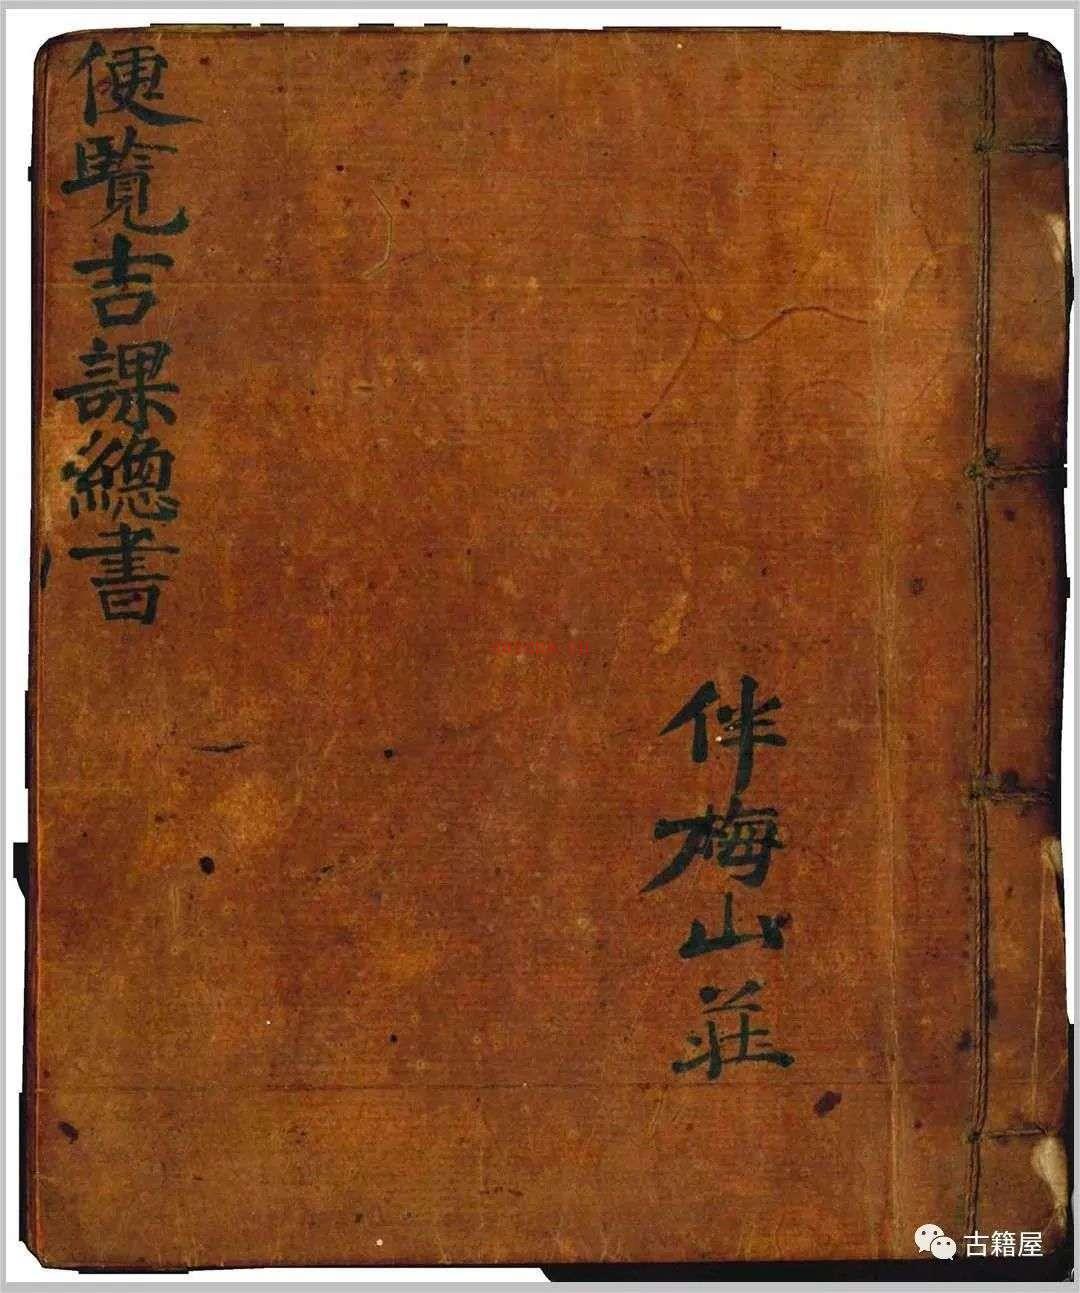 便覽吉課總書
伴梅山莊
古籍屋